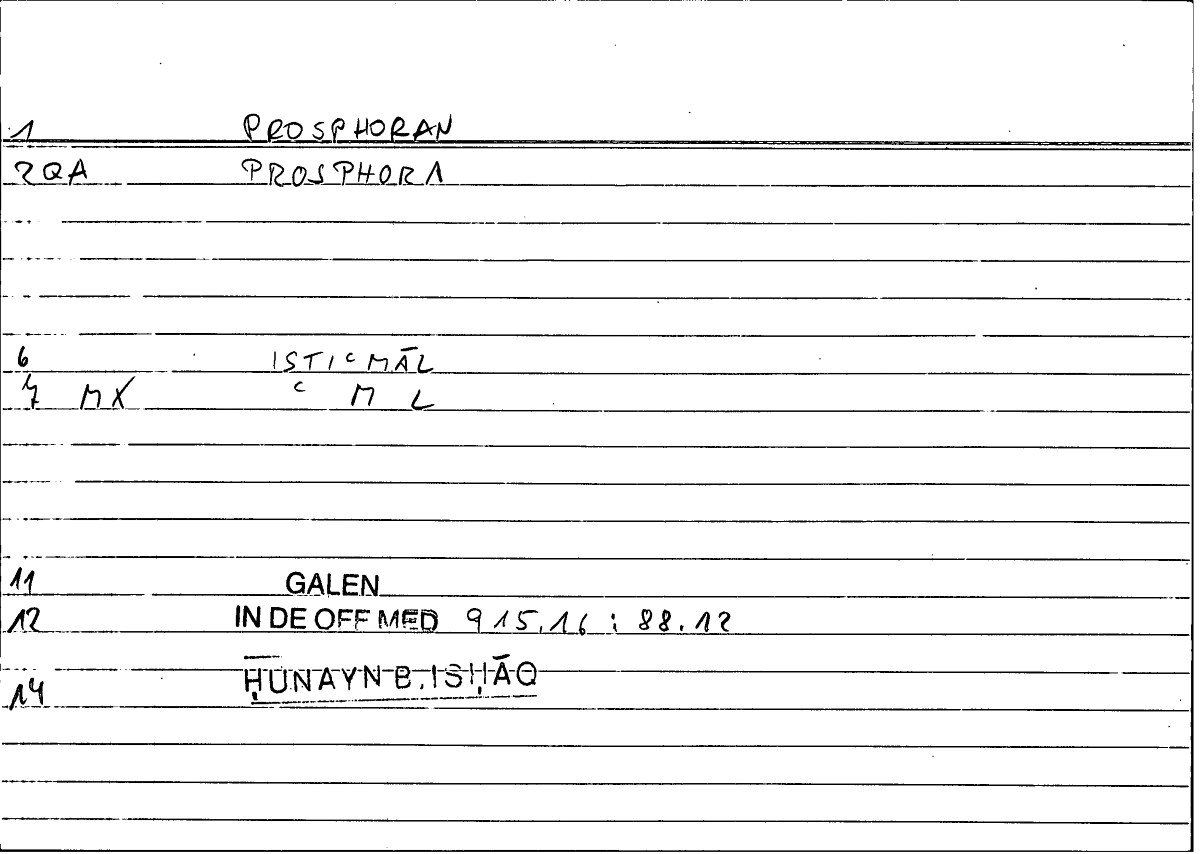 1 PROSPHORAN
2QA PROSPHORA
6 ISTIᶜMĀL
7 MX ᶜ M L
11 GALEN
12 IN DE OFF MED 915.16 ; 88.12
14 ḤUNAYN B. ISḤĀQ